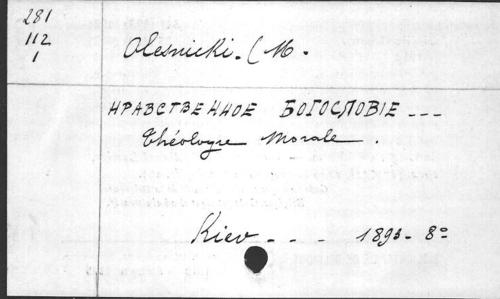 281
112
1
Olesnicki. (M.
НРАВСТВЕННОЕ БОГОСЛОВІЕ ---
Théologie Morale.
Kiev - - - 1893- 8º